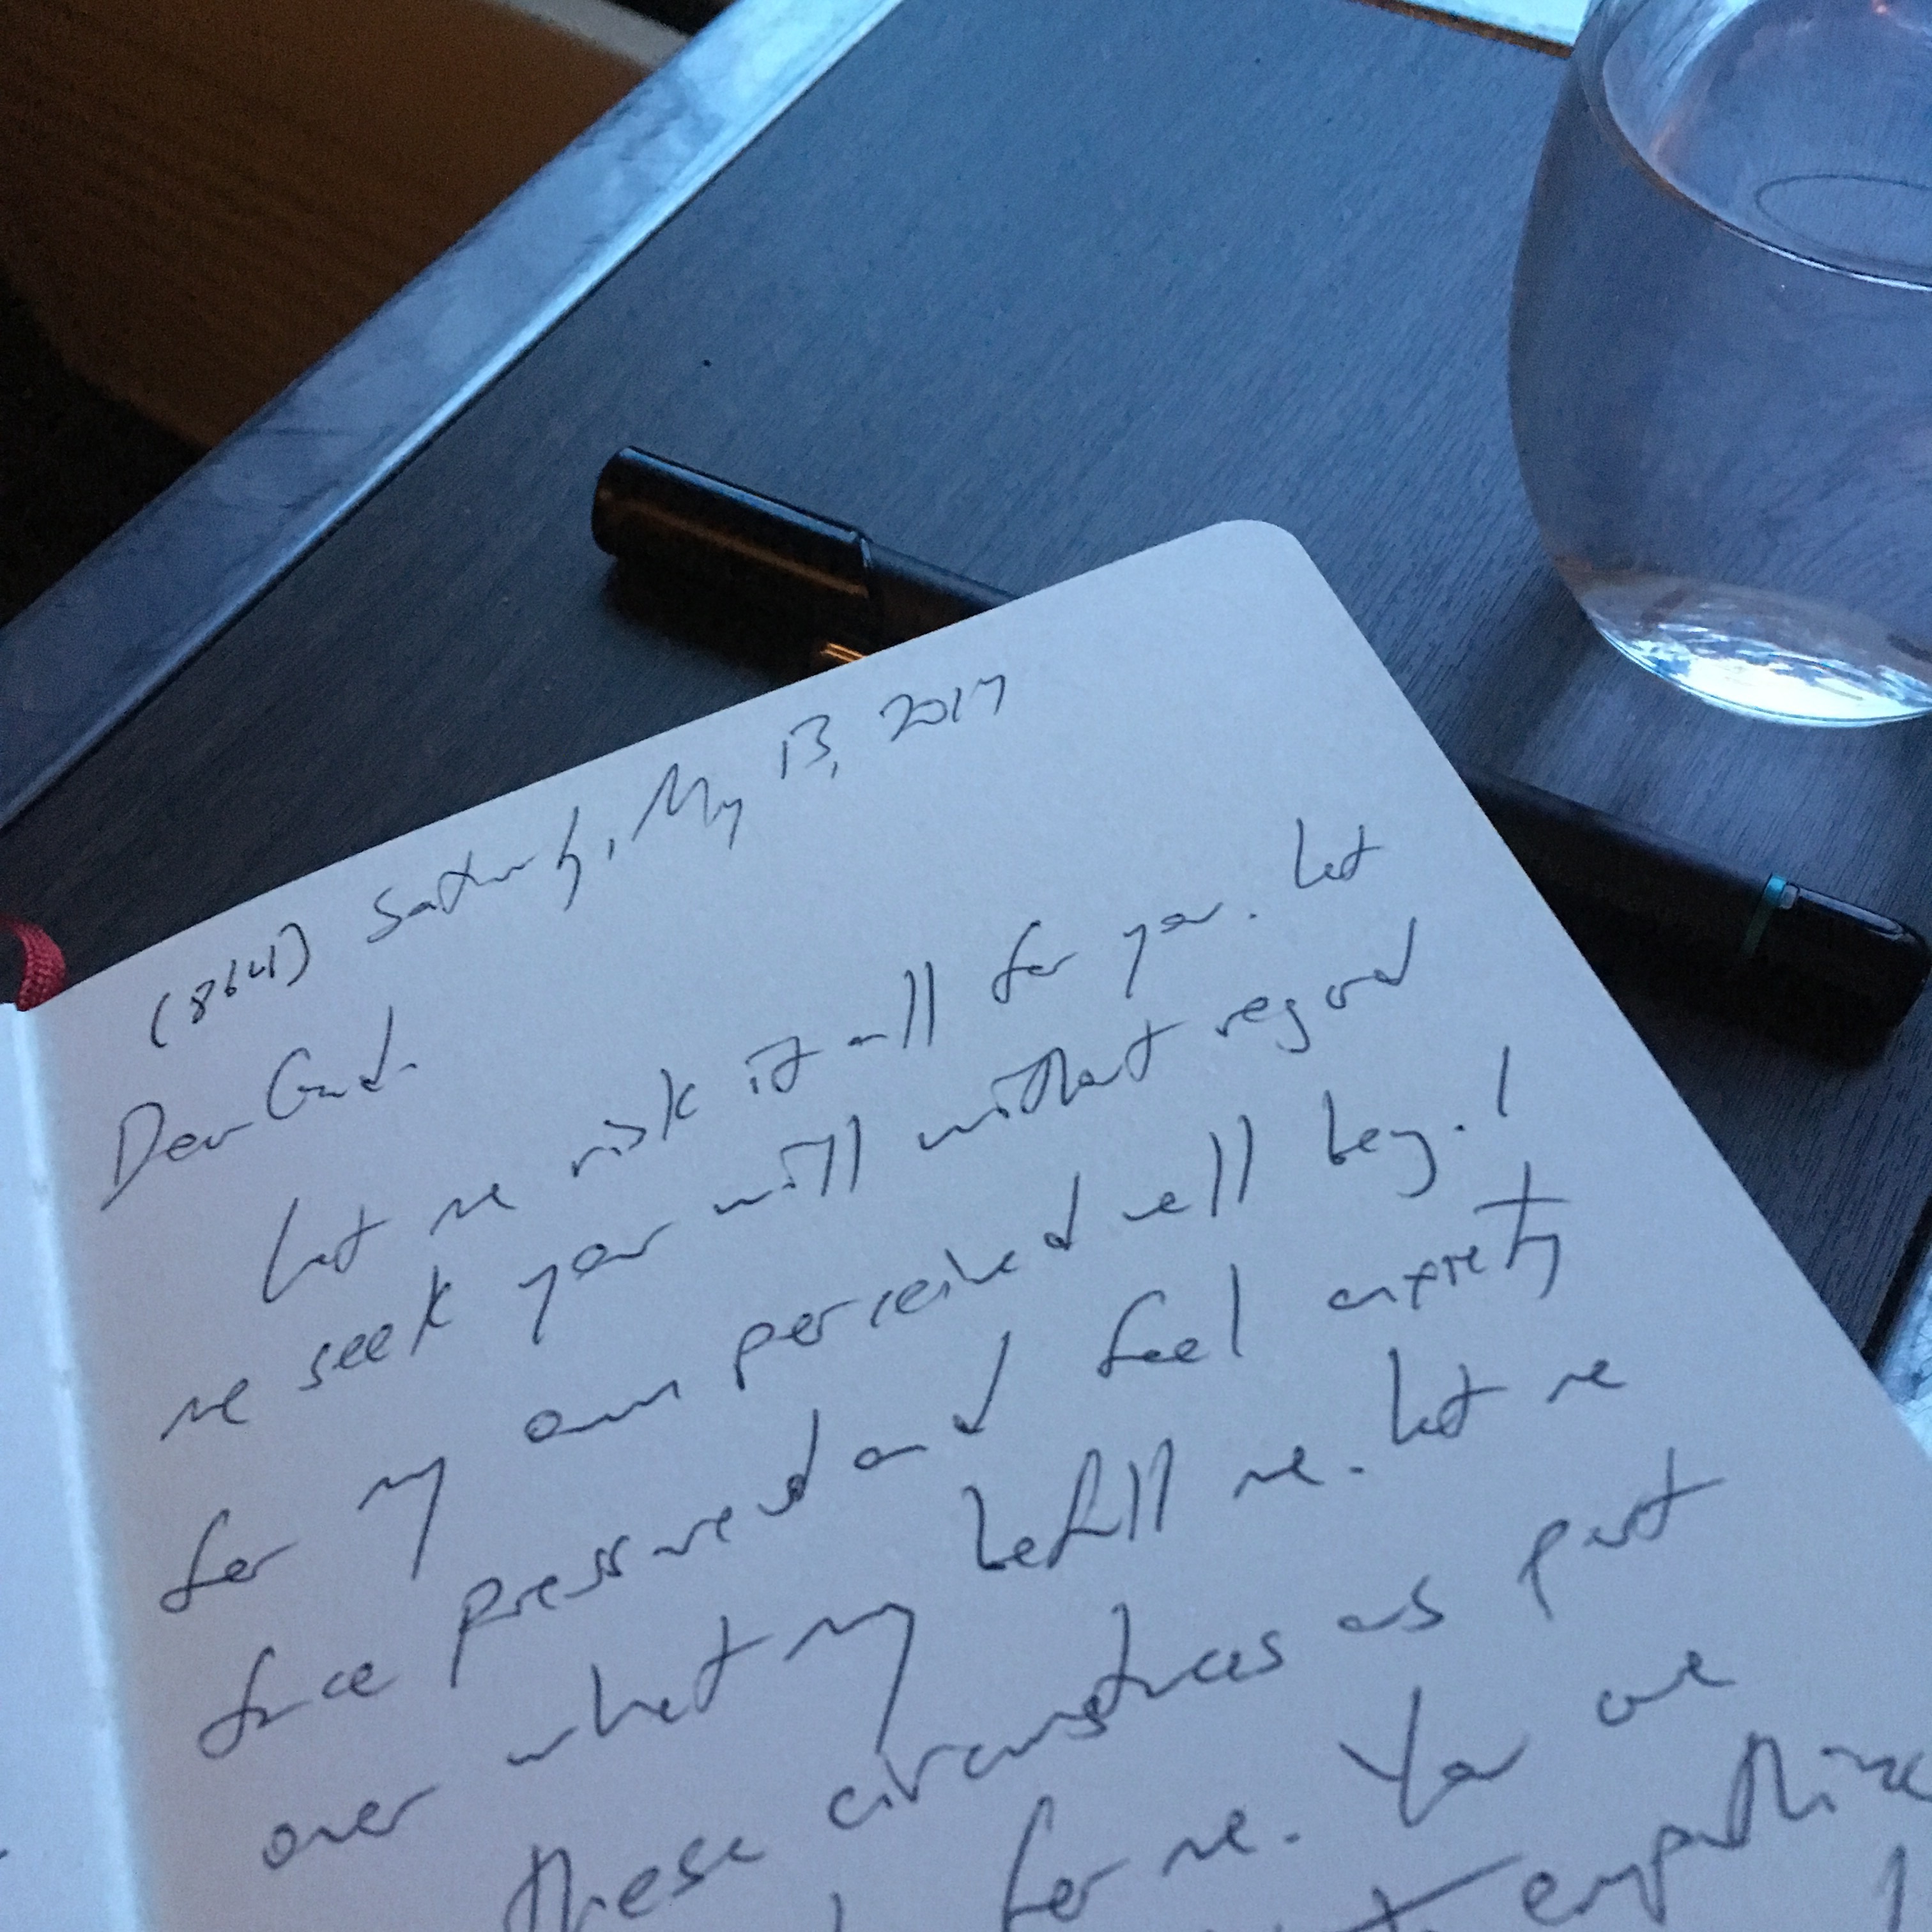 (8641) Saturday, May 13, 2017
Dear God.
Let me risk it all for you. Let
me seek your will without regard
for my own perceived well being. I
face pressured and feel anxiety
over what may befall me. Let me
these circumstances as part
for me. You are
empathize